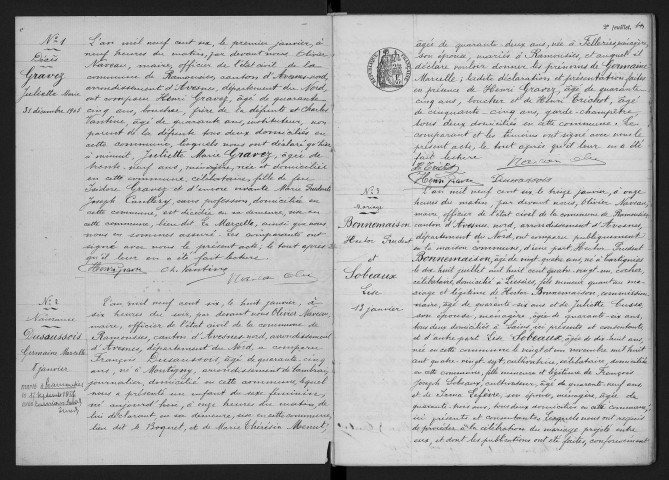 N° 1
Décès
Gravez
Juliette Marie
31 décembre 1905
L'an mil neuf cent six, le premier janvier, à
neuf heures du matin, par devant nous Olivier
Naveau, maire, officier de l'état civil de la
commune de Ramousies, canton d'Avesnes nord,
arrondissement d'Avesnes, département du Nord,
ont comparu Henri Gravez, âgé de quarante
cinq ans, boucher, frère de la défunte et Charles
Vantière, âgé de quarante ans, instituteur, non
parent de la défunte tous deux domiciliés en
cette commune, lesquels nous ont déclaré qu'hier
à minuit, Juliette Marie Gravez, âgée de
trente sept ans, ménagère, née et domiciliée
en cette commune, célibataire, fille de feu
Isidore Gravez et d'encore vivante Marie
Joseph Cuillery, sans profession, domiciliée en
cette commune, est décédée en sa demeure, sise en
cette commune, lieu dit La Margelle, ainsi que nous
nous en sommes assuré. Les comparants ont
signé avec nous le présent acte, le tout après
qu'il leur en a été fait lecture.
N° 2
Naissance
Dusaussois
Germaine Marcelle
8 janvier
L'an mil neuf cent six, le huit janvier, à
six heures du soir, par devant nous Olivier Naveau,
maire, officier de l'état civil de la commune de
Ramousies, canton d'Avesnes nord, arrondissement
d'Avesnes, département du Nord, a comparu
François Dusaussois, âgé de quarante cinq
ans, né à Montigny, arrondissement de Cambrai,
journalier, domicilié en cette commune, lequel
nous a présenté un enfant du sexe féminin,
né aujourd'hui, à onze heures du matin, de
lui déclarant, en sa demeure, sise en cette commune,
lieu dit le Boquet, et de Marie Thérésia Menut,
2e feuillet
âgée de quarante deux ans, née à Felleries, ménagère,
son épouse, mariés à Ramousies, et auquel il
déclare vouloir donner les prénoms de Germaine
Marcelle, lesdites déclaration et présentation faites
en présence de Henri Gravez, âgé de quarante
cinq ans, boucher et de Henri Trichet, âgé
de cinquante cinq ans, garde champêtre,
tous deux domiciliés en cette commune; Le
comparant et les témoins ont signé avec nous le
présent acte, le tout après qu'il leur en a été
fait lecture
Dusaussois
N° 3
Mariage
Bonnemaison
Hector Prudent
et
Sobeaux
Lise
13 janvier
L'an mil neuf cent six le treize janvier, à onze
heures du matin, par devant nous, Olivier Naveau,
maire officier de l'état civil de la commune de Ramousies,
canton d'Avesnes nord, arrondissement d'Avesnes,
département du Nord, ont comparu publiquement
en la maison commune, d'une part Hector Prudent
Bonnemaison, âgé de vingt quatre ans, né à Cartignies
le dix huit juillet mil huit cent quatre vingt un,
célibataire, domicilié à Lessies, fils mineur quant au ma-
riage et légitime de Hector Bonnemaison, commission-
naire, âgé de quarante six ans et de Juliette
son épouse, ménagère, âgée de quarante six ans,
tous deux domiciliés à Sains, ici présents et consentants
et d'autre part Lise Sobeaux, âgée de dix huit ans,
née en cette commune le vingt et un novembre mil huit
cent quatre vingt sept, cultivatrice, célibataire, domiciliée
en cette commune, fille mineure et légitime de François
Joseph Sobeaux, cultivateur, âgé de quarante neuf ans
et de Irma Lefèvre, son épouse, ménagère, âgée de
quarante trois ans, tous deux domiciliés en cette commune,
ici présents et consentants, Lesquels nous ont requis
de procéder à la célébration du mariage projeté entre
eux, et dont les publications ont été faites, conformément